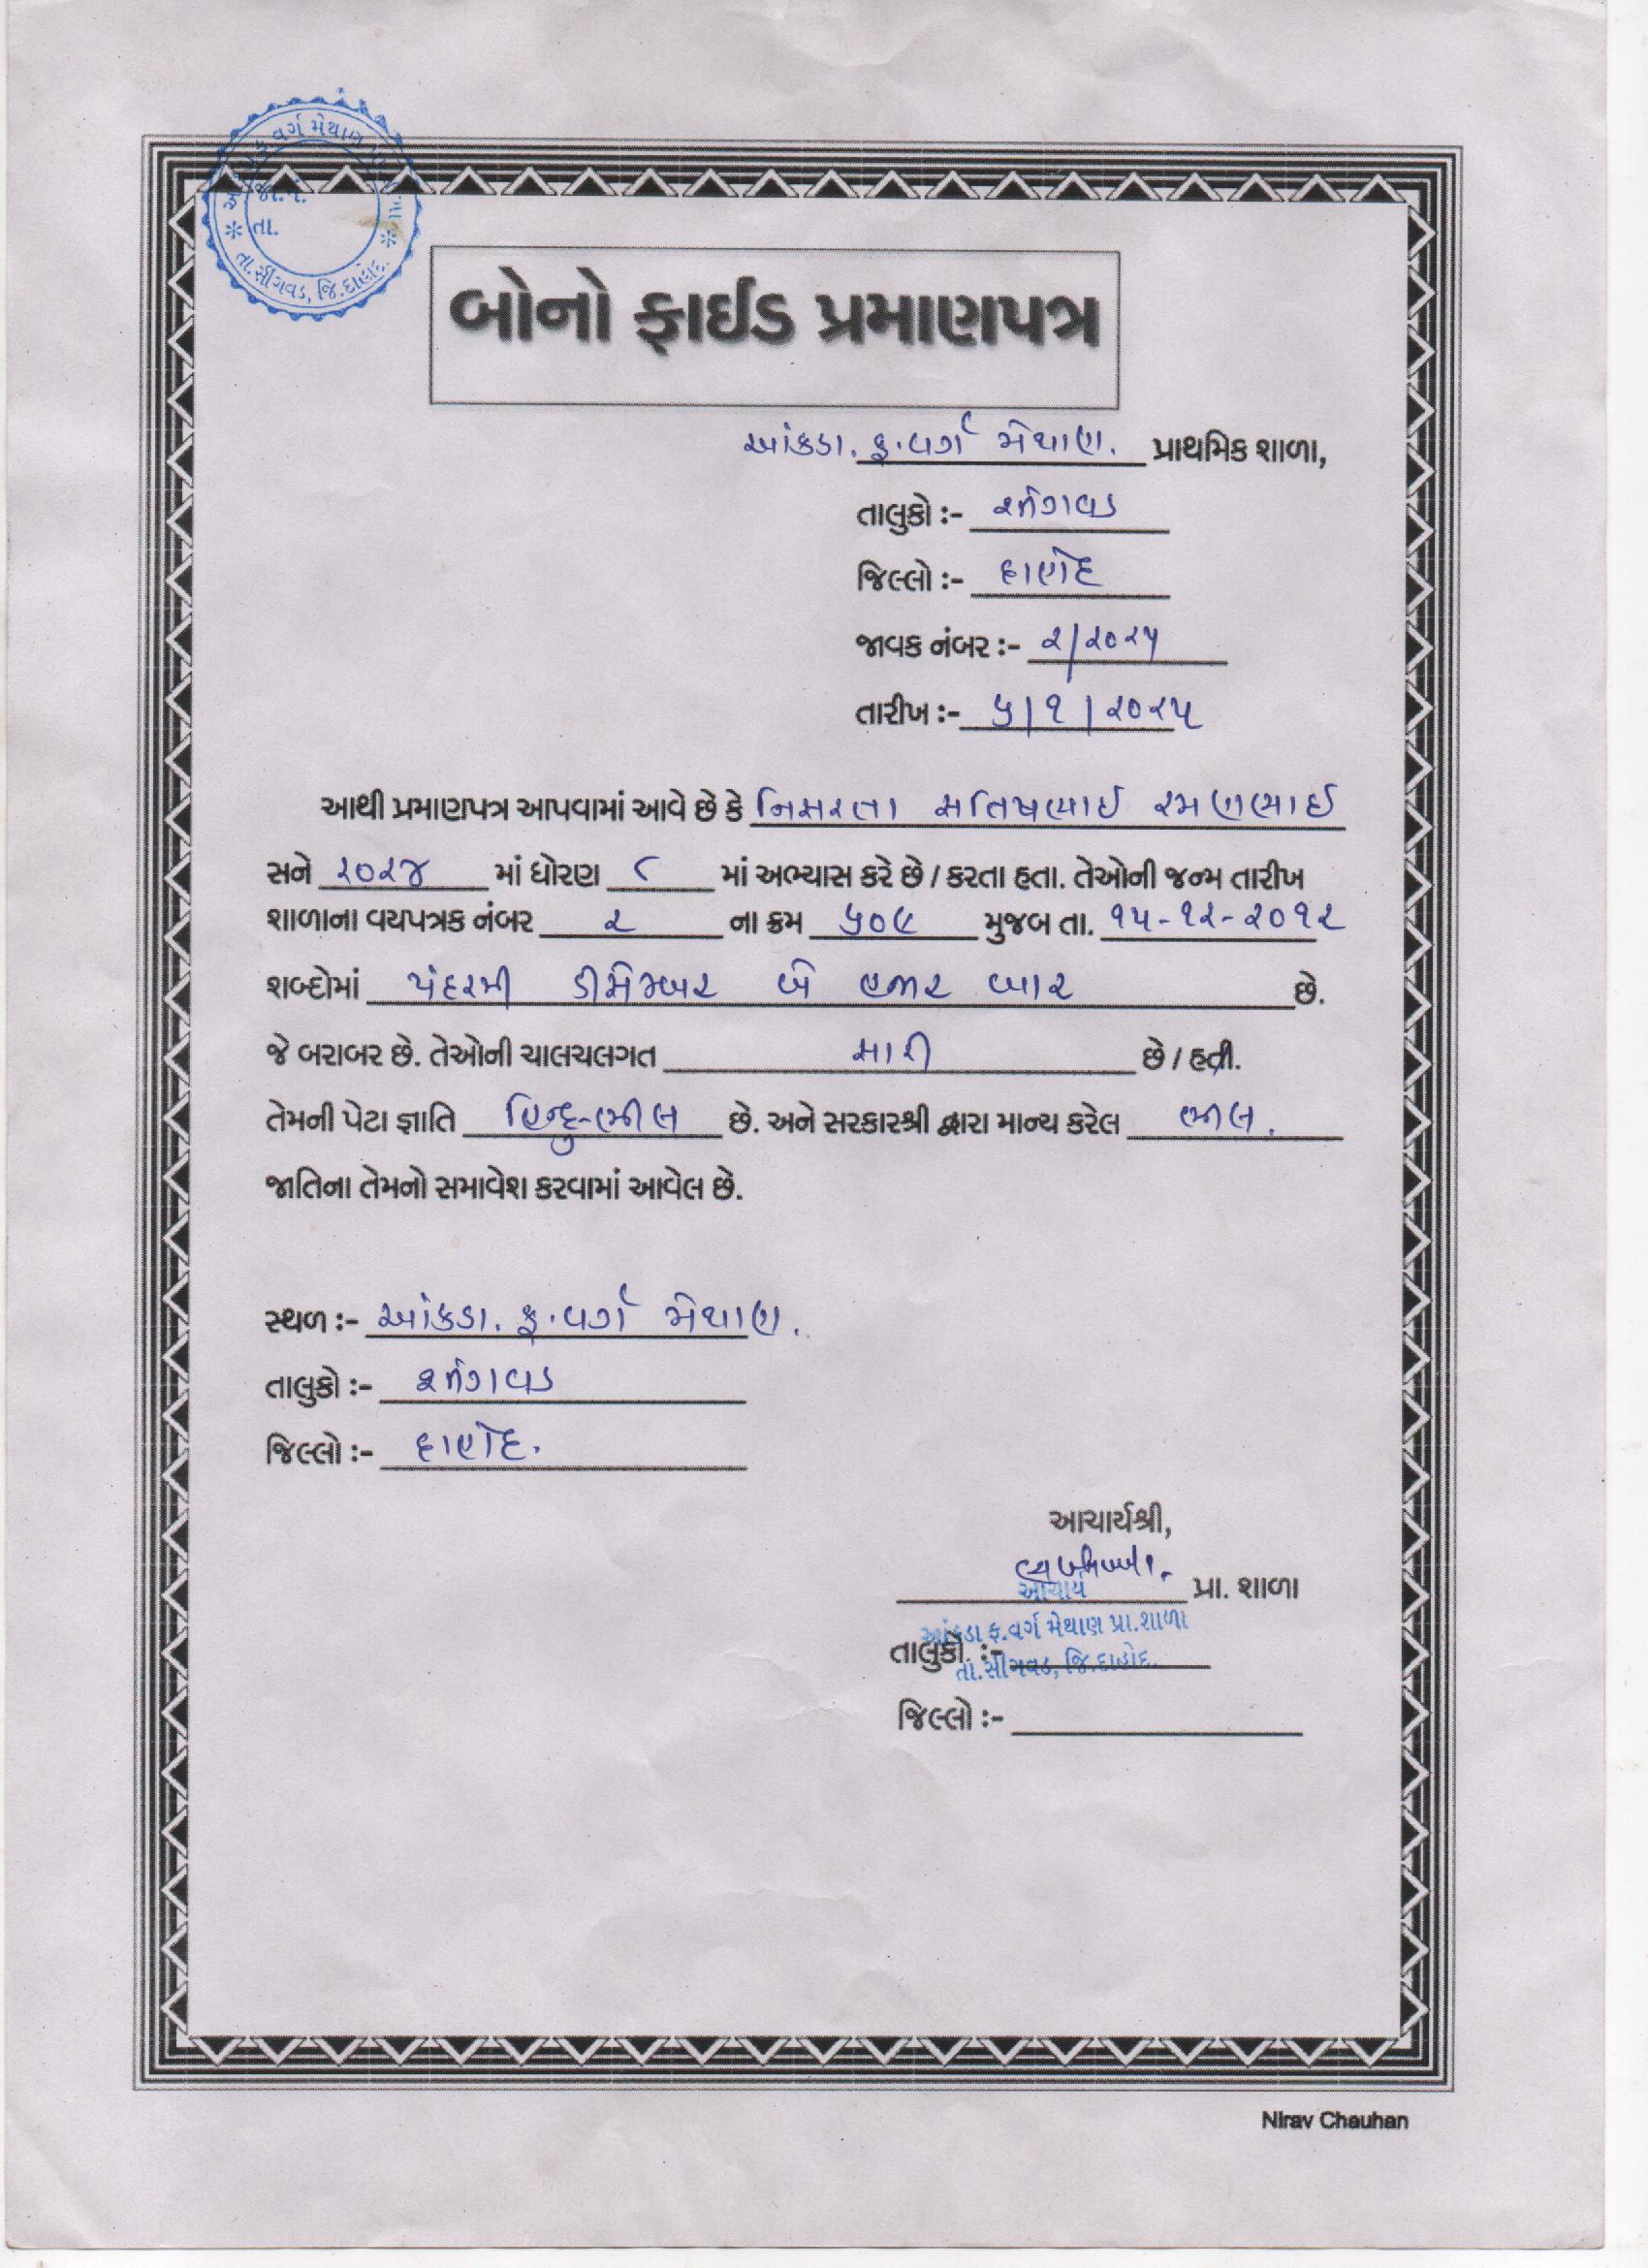 વર્ગ મેથાણ
જા.નં.
તા.
તા.સીંગવડ, જિ.દાહોદ.
બોનો ફાઈડ પ્રમાણપત્ર
આંકડા. ફ.વર્ગ મેથાણ. પ્રાથમિક શાળા,
તાલુકો :- સીંગવડ
જિલ્લો :- દાહોદ
જાવક નંબર :- ૨/૨૦૨૫
તારીખ :- ૫/૧/૨૦૨૫
આથી પ્રમાણપત્ર આપવામાં આવે છે કે નિસરતા સતિષભાઈ રમણભાઈ
સને ૨૦૨૪ માં ધોરણ ૮ માં અભ્યાસ કરે છે / કરતા હતા. તેઓની જન્મ તારીખ
શાળાના વયપત્રક નંબર ૨ ના ક્રમ ૫૦૯ મુજબ તા. ૧૫-૧૨-૨૦૧૨
શબ્દોમાં પંદરમી ડીસેમ્બર બે હજાર બાર છે.
જે બરાબર છે. તેઓની ચાલચલગત સારી છે / હતી.
તેમની પેટા જ્ઞાતિ હિન્દુ-ભીલ છે. અને સરકારશ્રી દ્વારા માન્ય કરેલ ભીલ.
જાતિના તેમનો સમાવેશ કરવામાં આવેલ છે.
સ્થળ :- આંકડા. ફ.વર્ગ મેથાણ.
તાલુકો :- સીંગવડ
જિલ્લો :- દાહોદ.
આચાર્યશ્રી,
પ્રા. શાળા
આચાર્ય
આંકડા ફ.વર્ગ મેથાણ પ્રા.શાળા
તાલુકો :-
તા.સીંગવડ, જિ.દાહોદ.
જિલ્લો :-
Nirav Chauhan